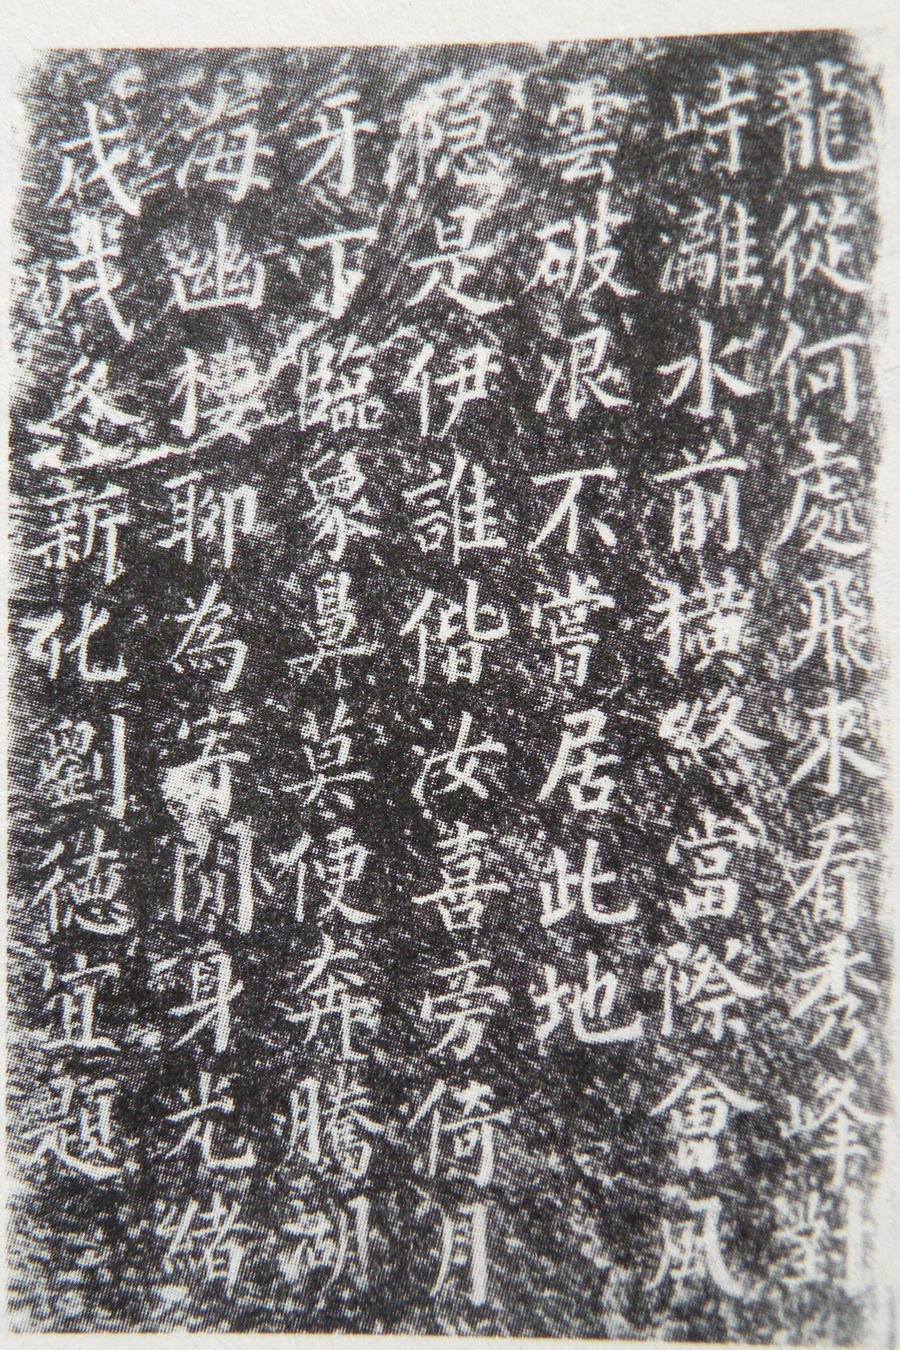 龍從何處飛來看秀峰對
峙灕水前橫終當際會風
雲破浪不嘗居此地
隱是伊誰偕汝喜旁倚月
牙下臨象鼻莫便奔騰湖
海幽棲聊為寄閒身光緒
戊戌冬新化劉德宜題